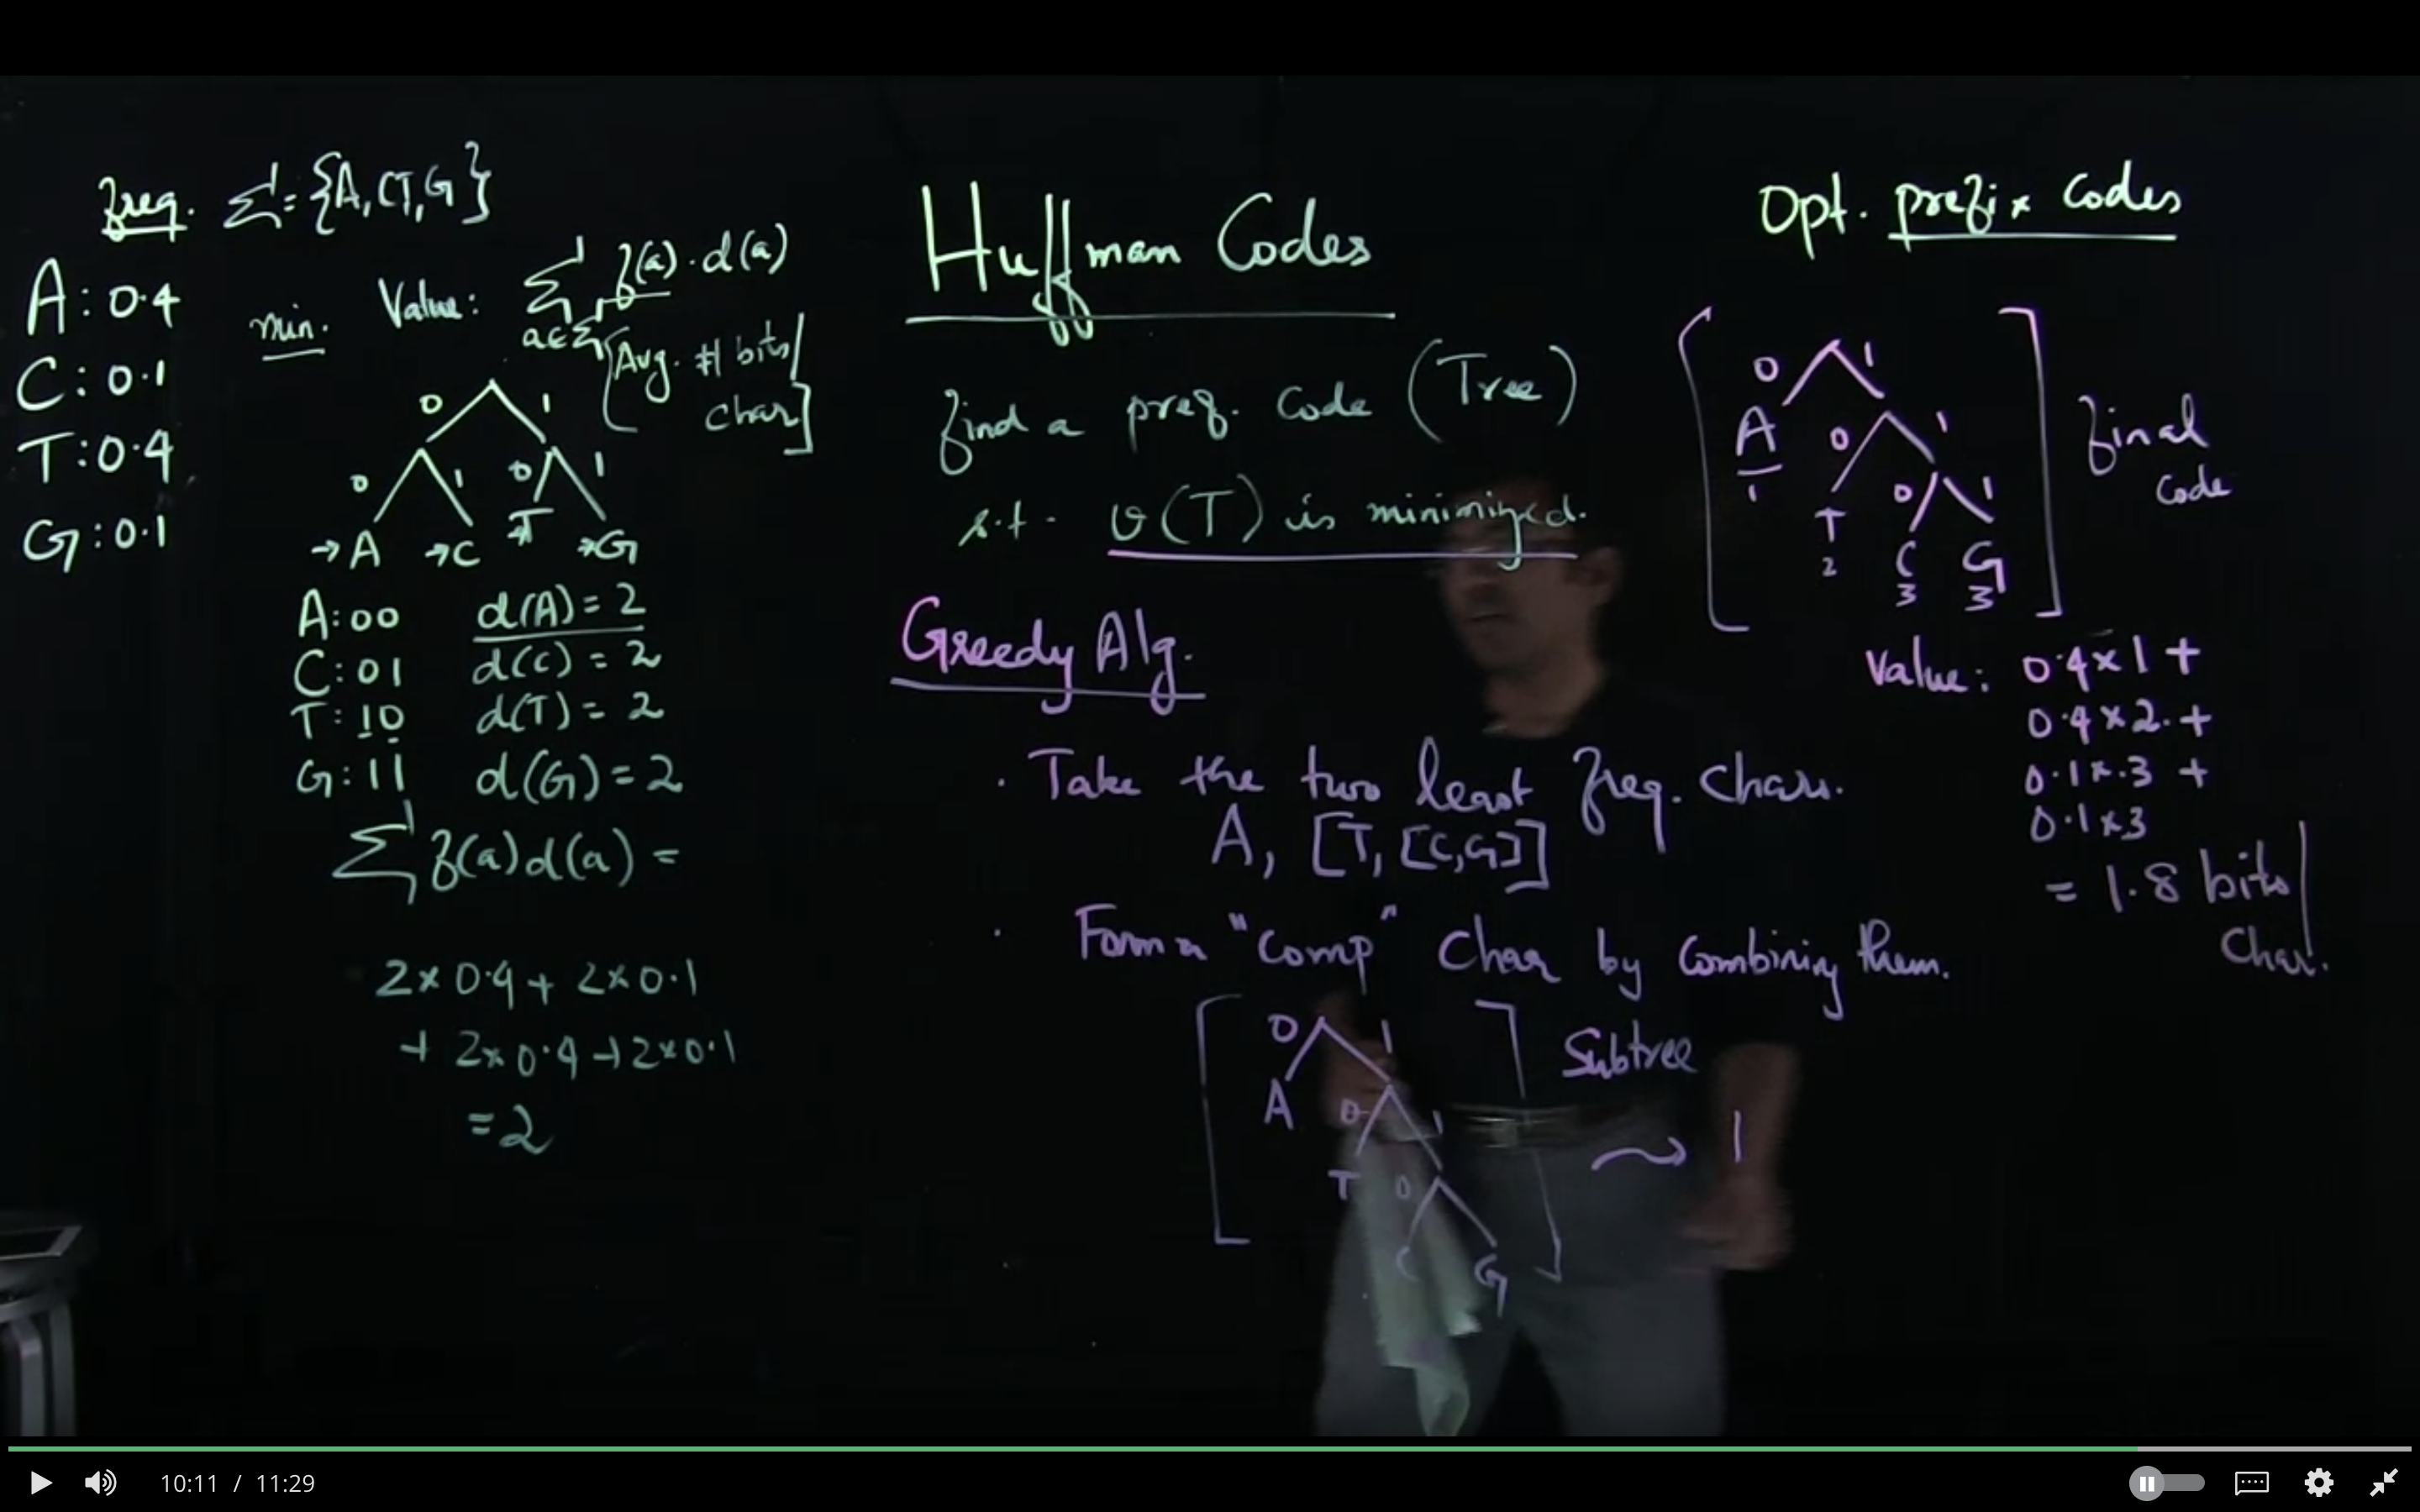 freq. Σ = {A, C, T, G}
A: 0.4
C: 0.1
T: 0.4
G: 0.1
min. Value: Σ f(a)·d(a)
a∈Σ
[Avg. # bits/
char]
0 1
0 1 0 1
→A →C →T →G
A: 00 d(A) = 2
C: 01 d(C) = 2
T: 10 d(T) = 2
G: 11 d(G) = 2
Σ f(a) d(a) =
2 × 0.4 + 2 × 0.1
+ 2 × 0.4 + 2 × 0.1
= 2
Huffman Codes
find a pref. code (Tree)
s.t. v(T) is minimized.
Greedy Alg.
· Take the two least freq. chars.
A, [T, [C, G]]
· Form a "comp" char by combining them.
0 1
A 0 1
T 0
C G
Subtree
⇝ 1
Opt. prefix codes
0 1
A 0 1
1 T 0 1
2 C G
3 3
final
code
Value: 0.4 × 1 +
0.4 × 2 +
0.1 × 3 +
0.1 × 3
= 1.8 bits/
char.
10:11 / 11:29